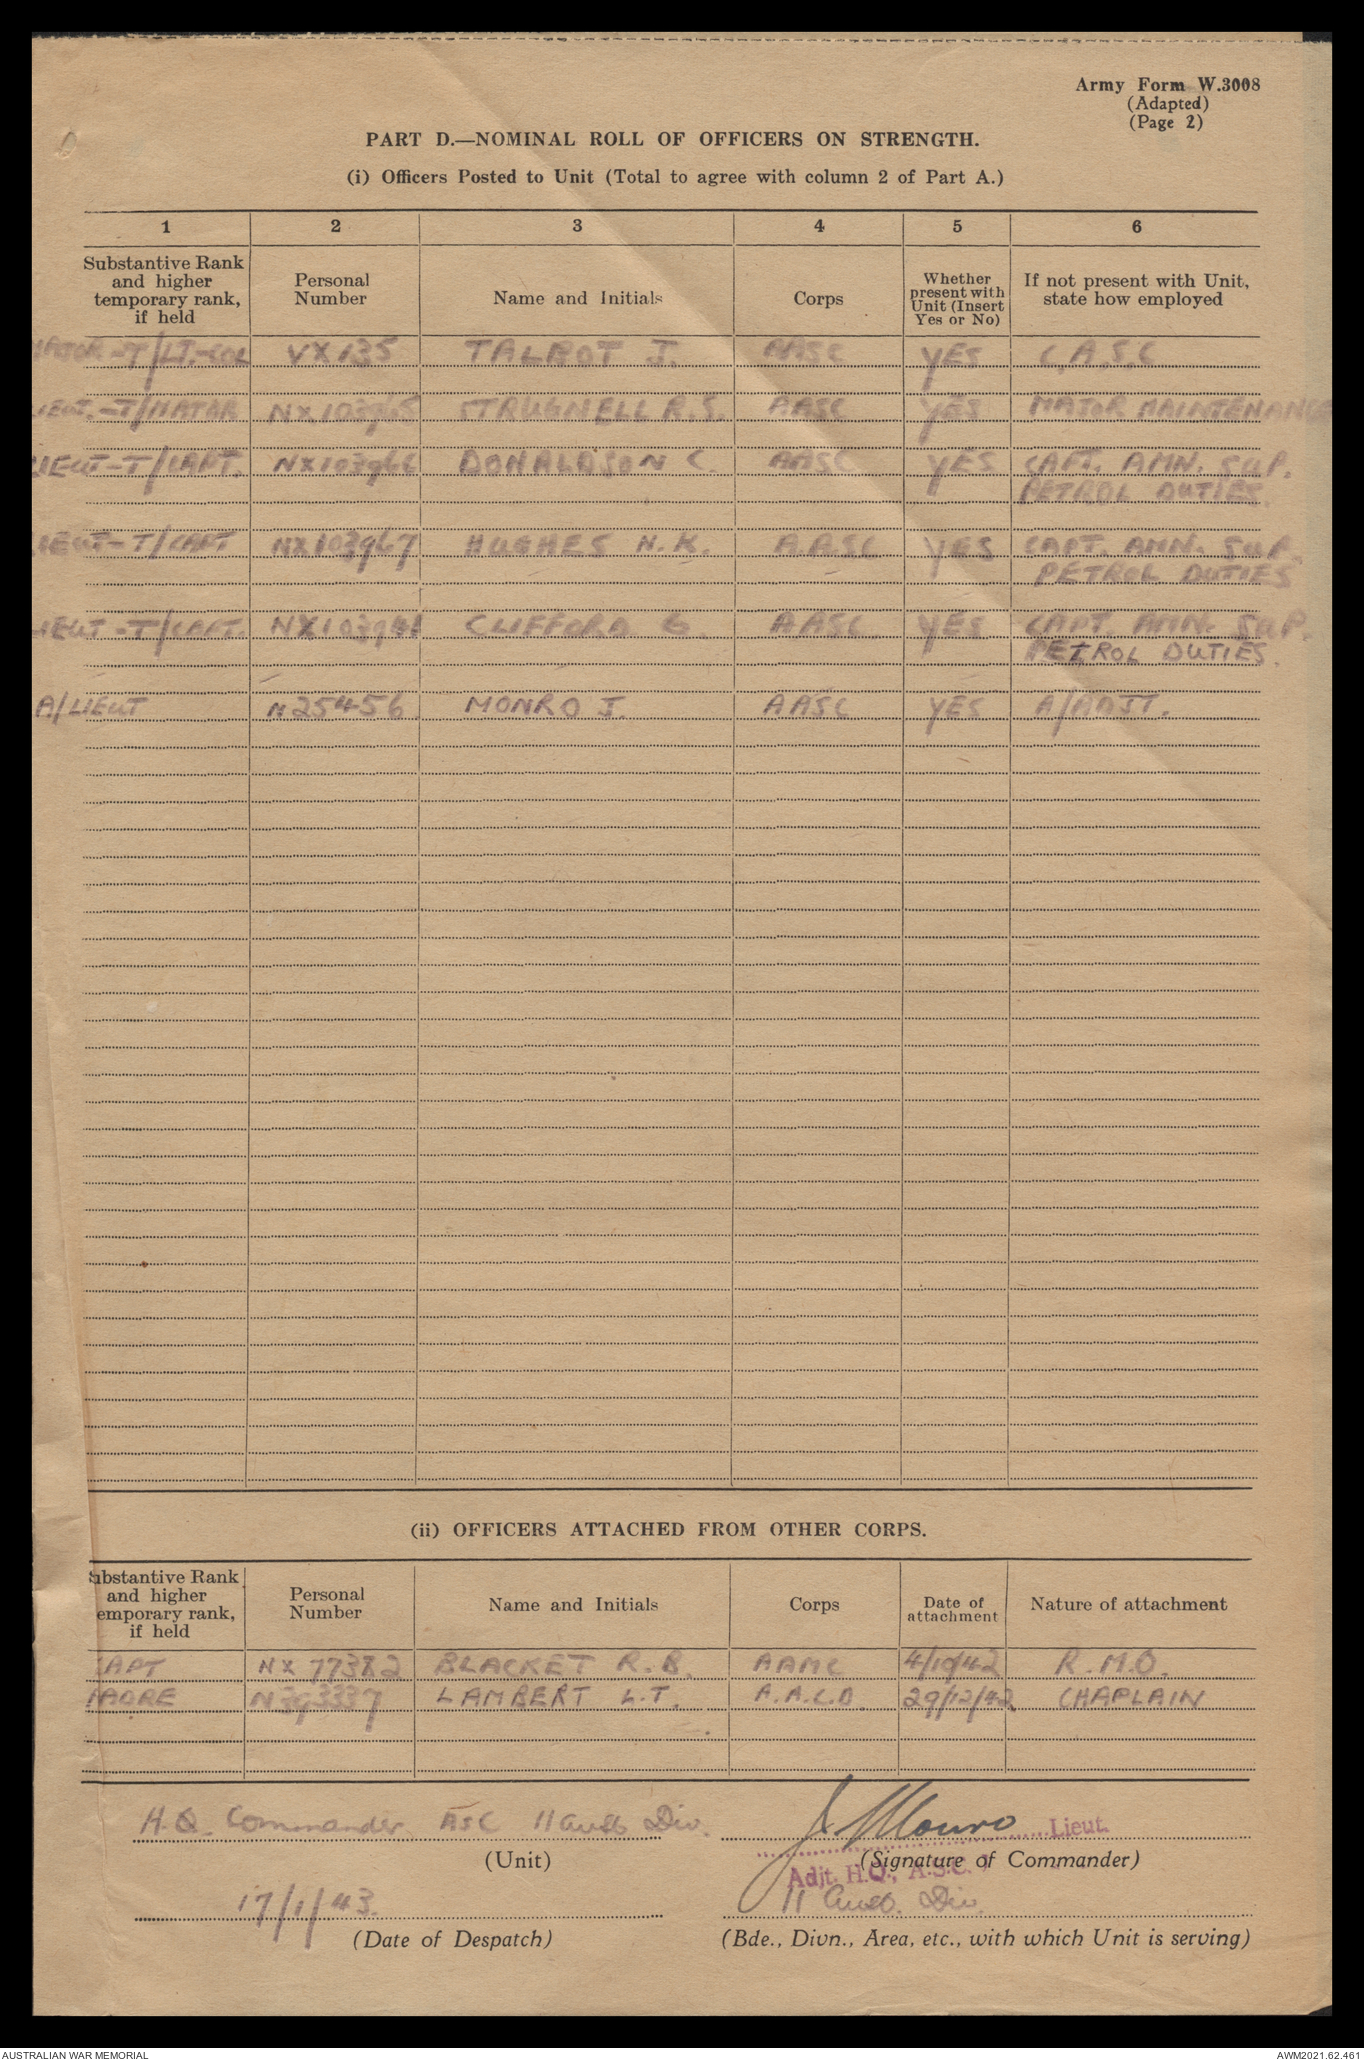 Army Form W.3008
(Adapted)
(Page 2)
PART D.—NOMINAL ROLL OF OFFICERS ON STRENGTH.
(i) Officers Posted to Unit (Total to agree with column 2 of Part A.)
1 2 3 4 5 6
Substantive Rank and higher temporary rank, if held Personal Number Name and Initials Corps Whether present with Unit (Insert Yes or No) If not present with Unit, state how employed
MAJOR-T/LT.-COL VX135 TALBOT J. AASC YES C.A.S.C
LIEUT.-T/MAJOR NX103965 STRUGNELL R.S. AASC YES MAJOR MAINTENANCE
LIEUT-T/CAPT. NX103966 DONALDSON C. AASC YES CAPT. AMN. SUP.
PETROL DUTIES.
LIEUT-T/CAPT NX103967 HUGHES N.K. A.A.S.C YES CAPT. AMN. SUP.
PETROL DUTIES
LIEUT-T/CAPT. CLIFFORD G. AASC. YES CAPT. AMN. SUP.
PETROL DUTIES.
A/LIEUT N25456 MONRO J. AASC YES A/ADJT.
(ii) OFFICERS ATTACHED FROM OTHER CORPS.
ubstantive Rank and higher emporary rank, if held Personal Number Name and Initials Corps Date of attachment Nature of attachment
CAPT NX 77382 BLACKET R.B. AAMC 4/10/42 R.M.O.
PADRE N393337 LAMBERT L.T. A.A.C.D 29/12/42 CHAPLAIN
H.Q. Commander ASC 11 Aust Div. J Monro Lieut.
(Unit) (Signature of Commander)
Adjt. H.Q., A.S.C.
17/1/43. 11 Aust. Div.
(Date of Despatch) (Bde., Divn., Area, etc., with which Unit is serving)
AUSTRALIAN WAR MEMORIAL AWM2021.62.461